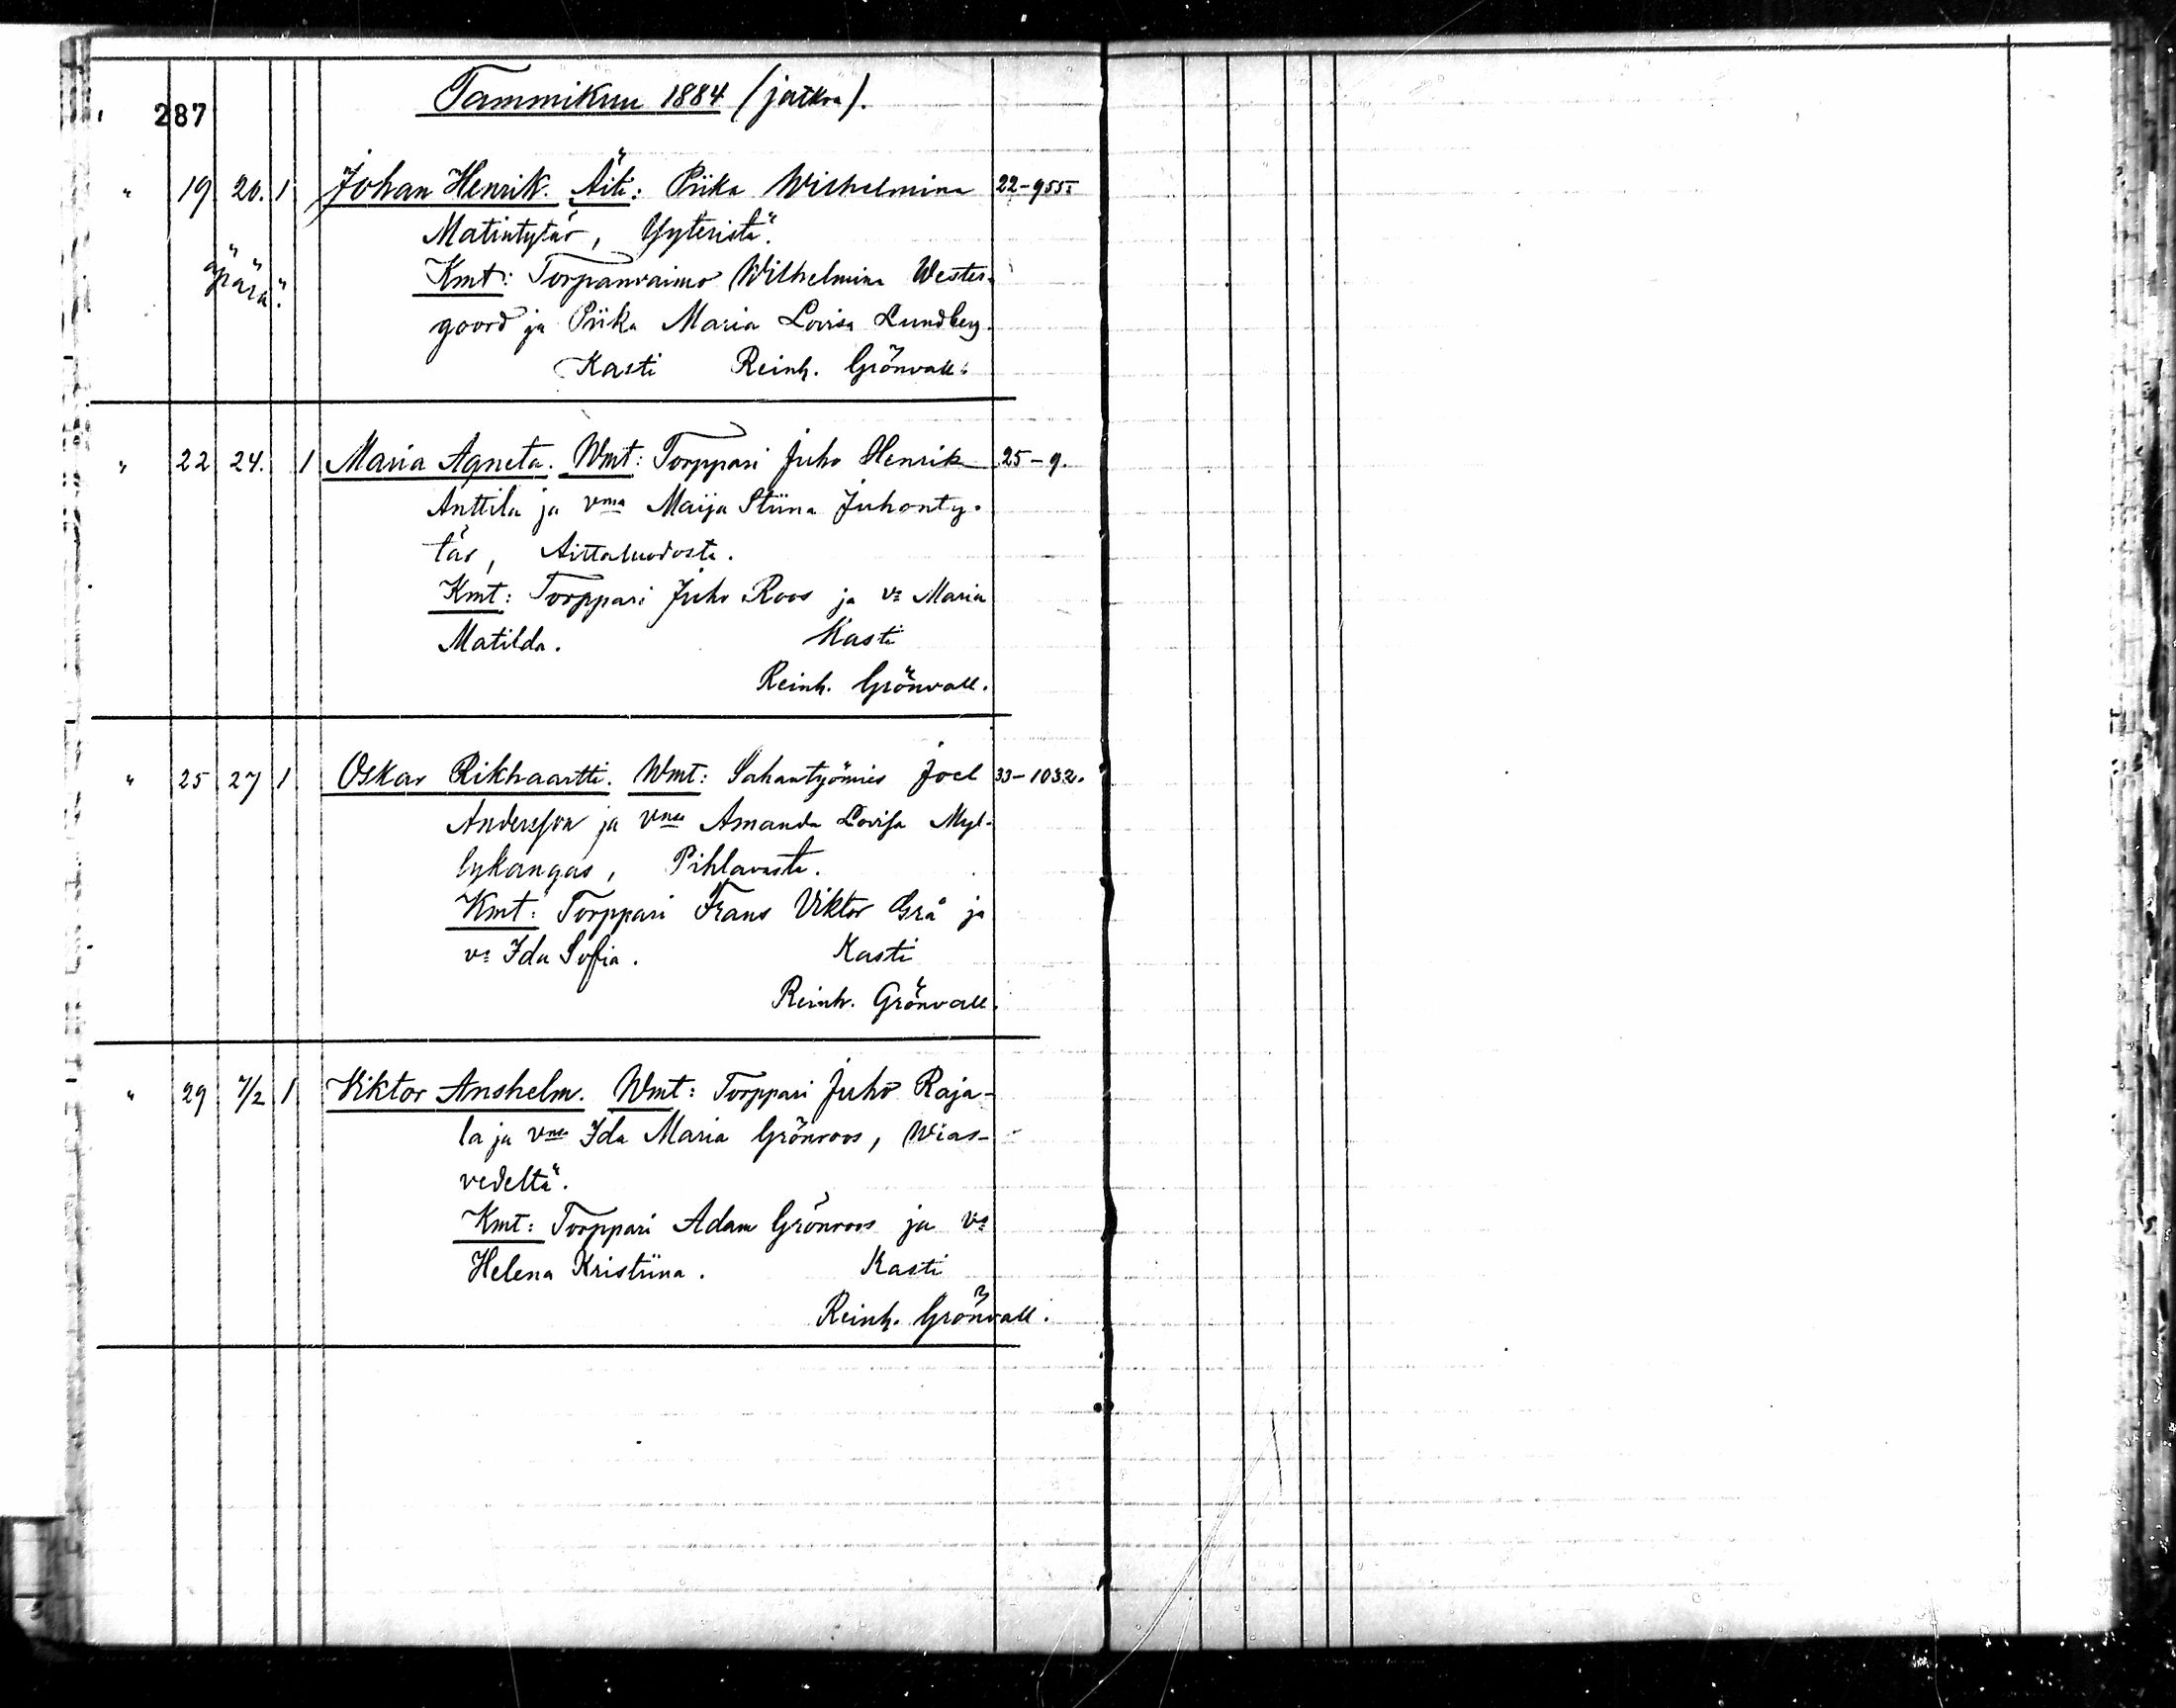 287
Tammikuu 1884 (jatkoa).
" 19 20. 1 Johan Henrik. Äiti: Piika Wilhelmina 22-955
Matintytär, Yyteristä.
äpärä. Kmt: Torpanvaimo Wilhelmina Wester-
goord ja Piika Maria Lovisa Lundberg.
Kasti Reinh. Grönvall.
" 22 24. 1 Maria Agneta. Wmt: Torppari Juho Henrik 25-9.
Anttila ja vma Maija Stiina Juhonty-
tär, Aittaluodosta.
Kmt: Torppari Juho Roos ja va Maria
Matilda. Kasti
Reinh. Grönvall.
" 25 27 1 Oskar Rikhaartti. Wmt: Sahantyömies Joel 33-1032.
Andersson ja vma Amanda Lovisa Myl-
lykangas, Pihlavasta.
Kmt: Torppari Frans Viktor Grå ja
va Ida Sofia. Kasti
Reinh. Grönvall.
" 29 7/2 1 Viktor Anshelm. Wmt: Torppari Juho Raja-
la ja vma Ida Maria Grönroos, Wias-
vedeltä.
Kmt: Torppari Adam Grönroos ja va
Helena Kristiina. Kasti
Reinh. Grönvall.